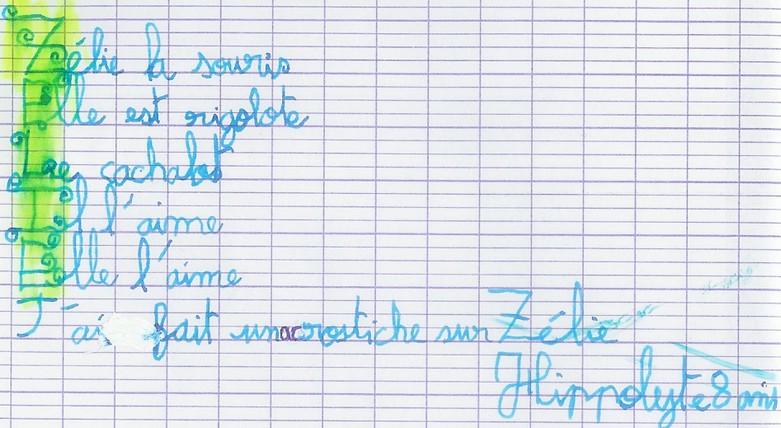 Zélie la souris
Elle est rigolote
Le cachalot
Il l'aime
Elle l'aime
J'ai fait un acrostiche sur Zélie
Hippolyte 8 ans